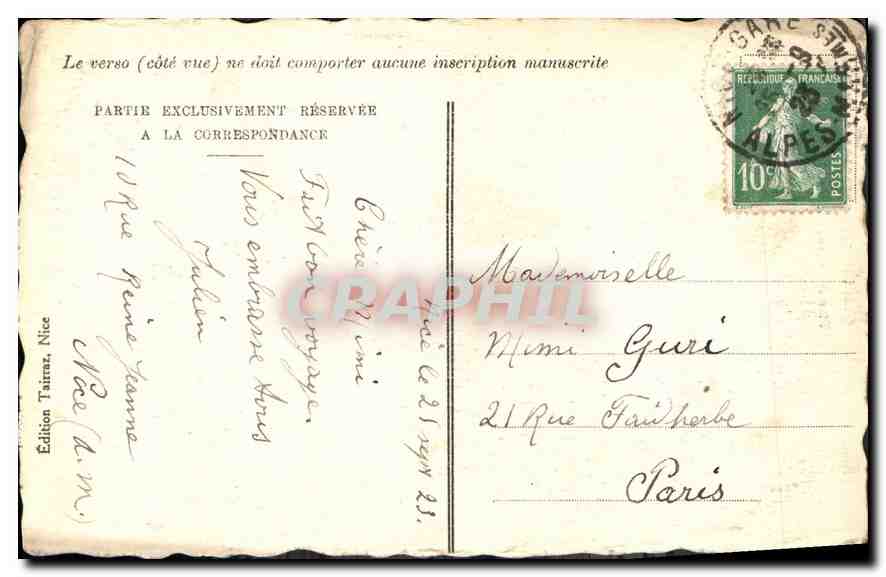 Le verso (côté vue) ne doit comporter aucune inscription manuscrite
PARTIE EXCLUSIVEMENT RÉSERVÉE
A LA CORRESPONDANCE
Nice le 21 sept 23.
Chère Mimi
Fait bon voyage.
Vous embrasse tous
Julien
10 Rue Reine Jeanne
Nice (a.m.)
Édition Tairraz, Nice
RÉPUBLIQUE FRANÇAISE
10c
POSTES
GARE
ALPES
Mademoiselle
Mimi Guri
21 Rue Faidherbe
Paris
CRAPHIL